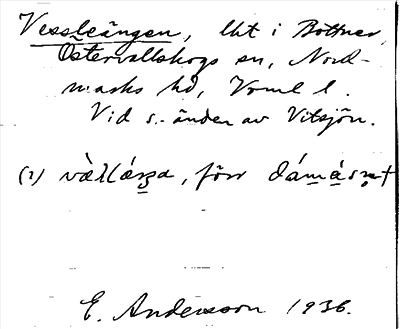 Vessleängen, lht i Bottner,
Östervallskogs sn, Nord-
marks hd, Vrml l.
Vid s. änden av Vitsjön.
(1) , förr
E. Andersson 1936.